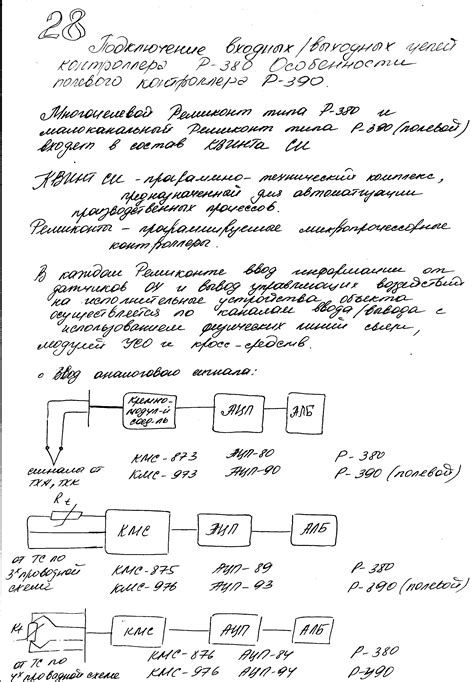 28
Подключение входных/выходных цепей
контроллера Р-380 Особенности
полевого контроллера Р-390.
Многоцелевой Ремиконт типа Р-380 и
малоканальный Ремиконт типа Р-390 (полевой)
входят в состав КВИНТа СИ
КВИНТ СИ - программно-технический комплекс,
предназначенной для автоматизации
производственных процессов.
Ремиконты - программируемые микропроцессорные
контроллеры.
В каждом Ремиконте ввод информации от
датчиков ОУ и вывод управляющих воздействий
на исполнительные устройства объекта
осуществляется по каналам ввода/вывода с
использованием физических линий связи,
модулей УСО и кросс-средств.
Ввод аналогового сигнала:
Клеммно-
модул-й
соед-ль
АЦП
АЛБ
сигнала от
ТХА, ТХК
КМС-873 АЦП-80 Р-380
КМС-973 АЦП-90 Р-390 (полевой)
Rt
КМС
АЦП
АЛБ
от ТС по
3х проводной
схеме
КМС-875 АЦП-89 Р-380
КМС-976 АЦП-93 Р-390 (полевой)
Rt
КМС
АЦП
АЛБ
от ТС по
4х проводной схеме
КМС-876 АЦП-84 Р-380
КМС-976 АЦП-94 Р-390